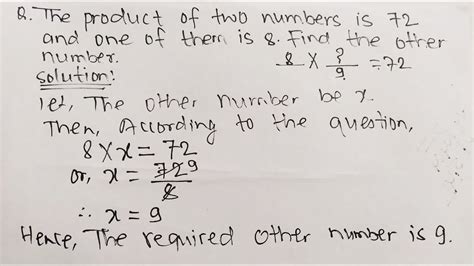 Q. The product of two numbers is 72
and one of them is 8. Find the other
number. 8 × ?/9 = 72
Solution:
let, The other number be x.
Then, According to the question,
8 × x = 72
or, x = 72 9/8
∴ x = 9
Hence, The required other number is 9.